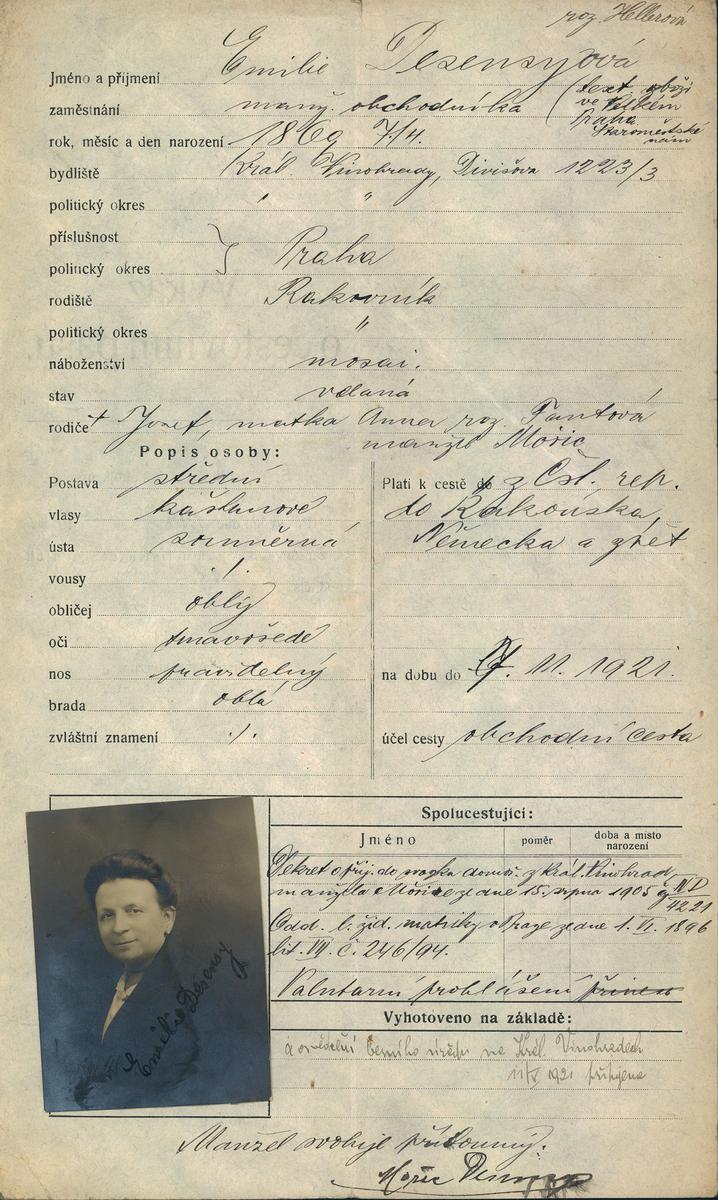 roz. Hellerová
Jméno a příjmení Emilie Desensyová
zaměstnání manž. obchodníka (text. zboží
ve Velkém
Praha
Staroměstské
nám
rok, měsíc a den narození 1869 7/4.
bydliště Král. Vinohrady, Divišova 1223/3
politický okres " "
příslušnost
politický okres } Praha
rodiště Rakovník
politický okres "
náboženství mosai.
stav vdaná
rodiče + Josef, matka Anna roz. Fantová
manžel Mořic
Popis osoby:
Postava střední
vlasy kaštanové
ústa souměrná
vousy ./.
obličej oblý
oči tmavošedé
nos pravidelný
brada oblá
zvláštní znamení ./.
Platí k cestě do z Čsl. rep.
do Rakouska,
Německa a zpět
na dobu do 17. 11. 1921.
účel cesty obchodní cesta
Spolucestující:
Jméno poměr doba a místo
narození
Dekret o přij. do svazku domov. z Král. Vinohrad
manžela Mořice ze dne 15. srpna 1905 č IVD
4221
Odd. l. žid. matriky v Praze ze dne 1. VI. 1896
lit. VII. č. 246/94.
Valutární prohlášení
Vyhotoveno na základě:
a osvědčení berního úřadu na Král. Vinohradech
1921 připojena
Emilie Desensy
Manžel svoluje přítomný.
Mořic Desensy